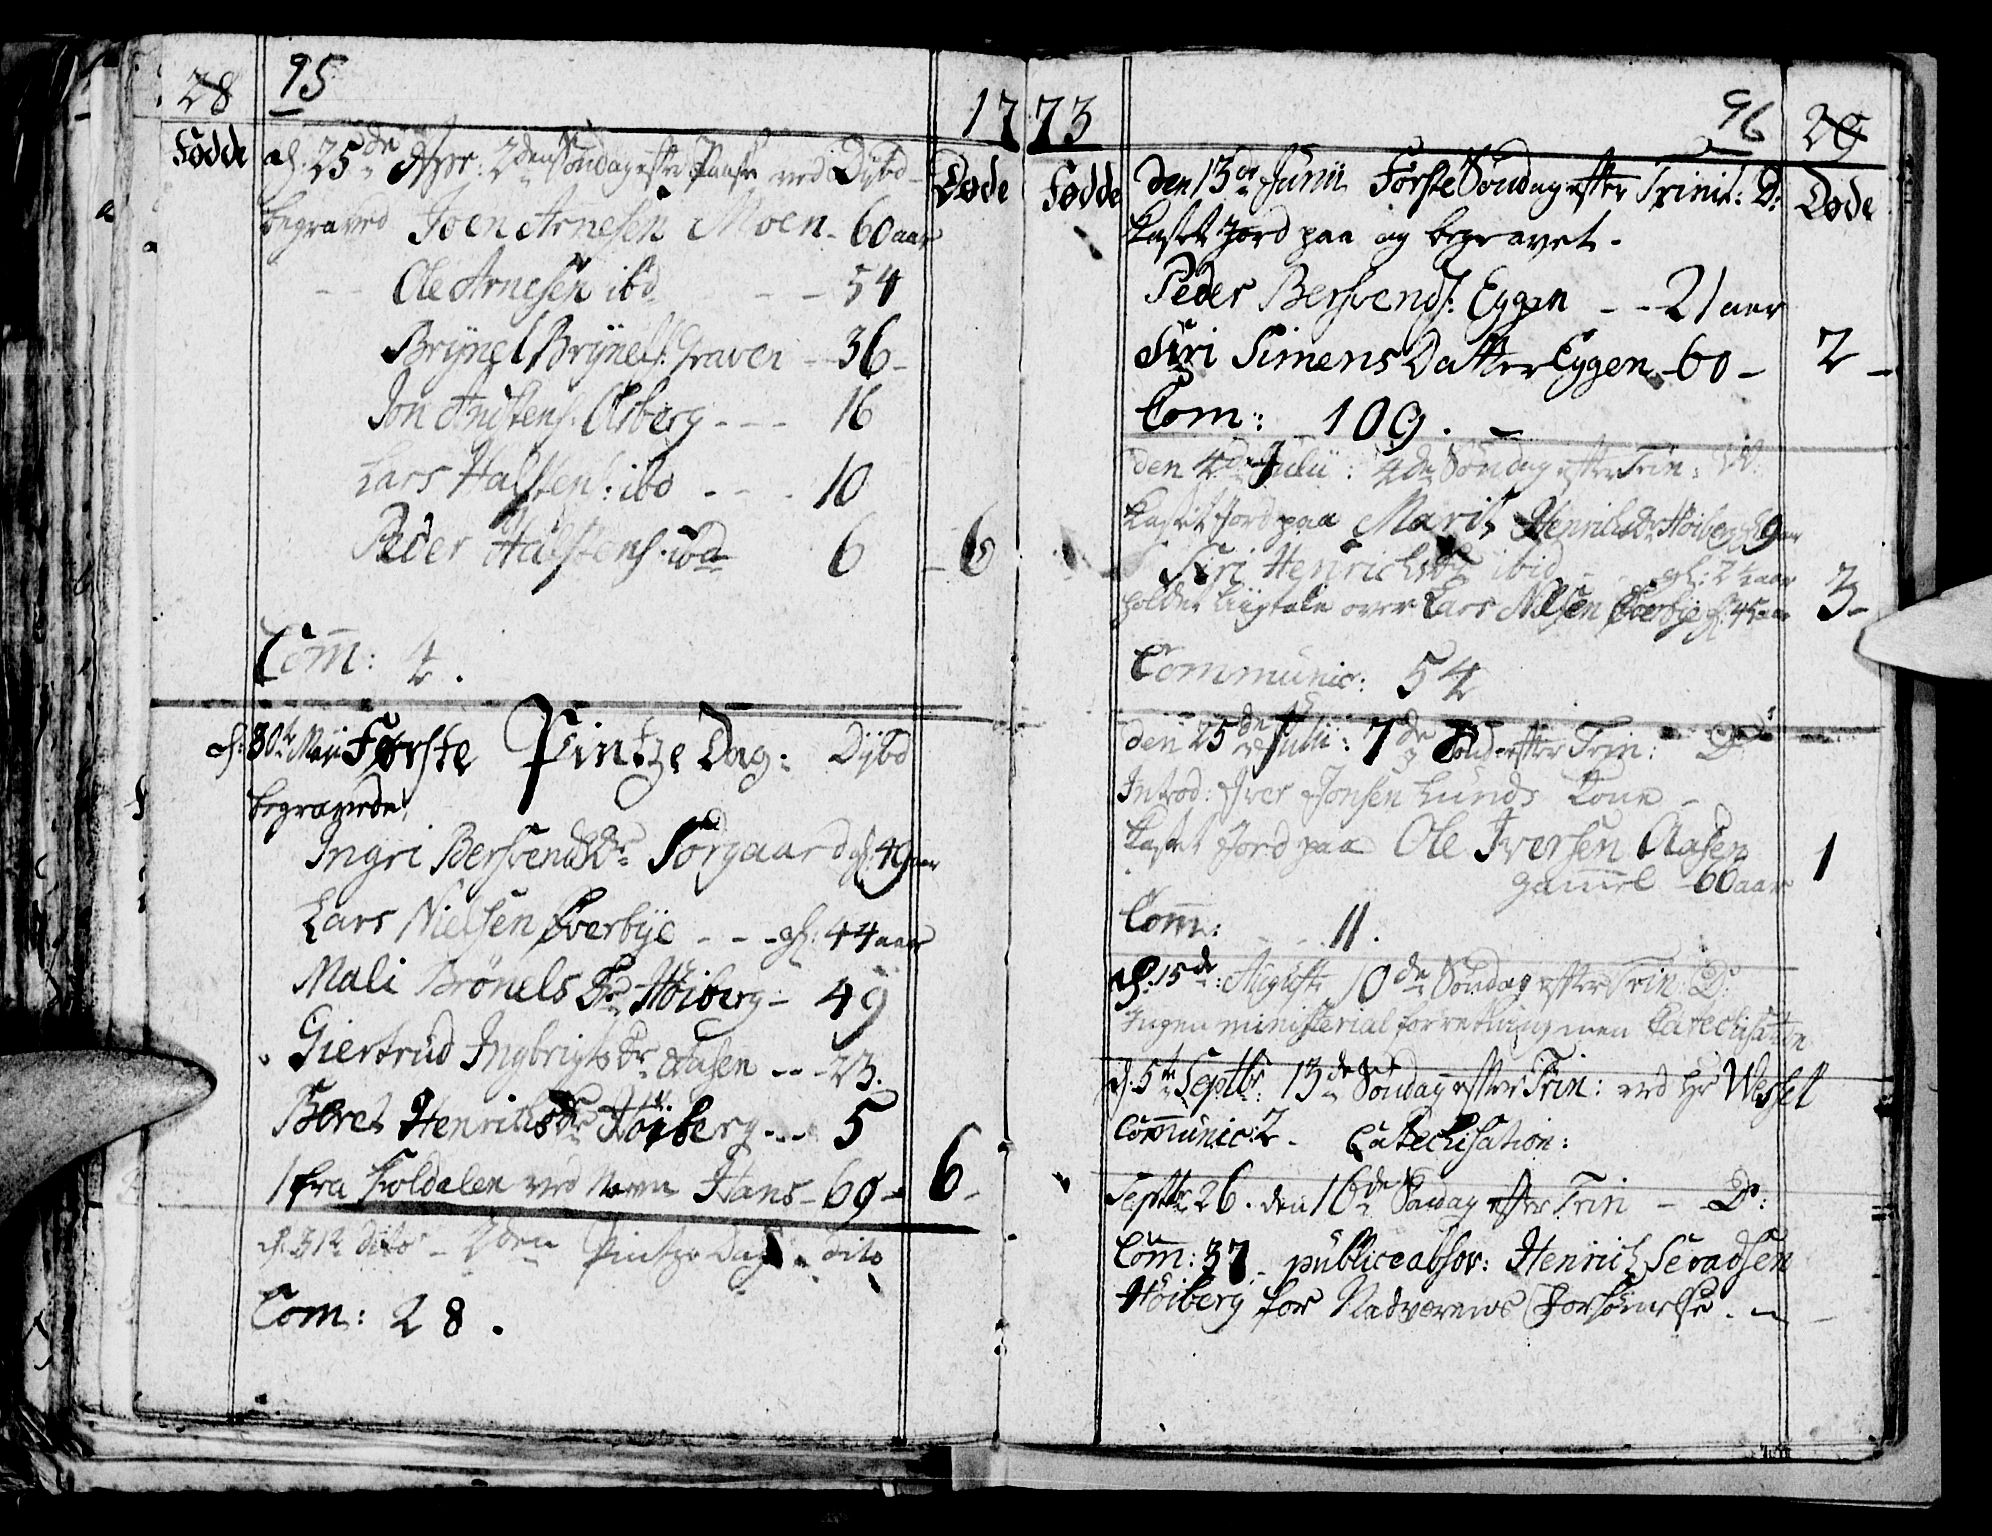 28 95
1773
Fødde Døde
d. 25de Apr: 2den Søndag efter Paaske ved Dybd
begraved Joen Arnesen Moen - 60 aar
- - Ole Arnesen ibd - - - 54
Brÿnel Brÿnels: Graven - 36 -
Jon Andstens: Aasberg - - - 16
Lars Halstens: ibd - - - 10
Peder Halstens: ibd 6 - 6
Com̄: 4.
d: 30te Maji Første Pintze Dag: Dÿbd
begravede
Ingri Bersvends Dr Sørgaard gl: 49 aar
Lars Nielsen Øverbÿe - - - gl: 44 aar
Mali Brönels Dr Höiberg - 49
Giertrud Ingbrigts Dr Aasen - - - 23.
Beret Henrichs Dr Höiberg - - - 5
1 fra Holdalen ved Navn Hans - 69 - 6 -
d. 31te dito - 2den Pintze Dag: dito
Com: 28.
96 29
Fødde Døde
den 13de Junii Første Søndag efter Trinit: D:
kastet Jord paa og begravet.
Peder Bersvends: Eggen - - 21 aar
Siri Simens Datter Eggen - 60 - 2 -
Com: 109. -
den 4de Julii: 4de Søndag efter Trin:
kastet Jord paa Marit Henrichsdr Höiberg 9 aar
Siri Henrichsdr ibid - gl: 2 1/2 aar
holdet Liigtale over Lars Nilsen Øverbÿe gl. 45 aar 3 -
Communic: 54
den 25de Julii: 7de Sönd. efter Trin: D:
Introd: Iver Jonsen Lunds Kone -
kastet Jord paa Ole Iversen Aasen
gam̄el - 60 aar 1
Com̄: - - 11.
d. 15de: Augusti 10de Søndag efter Trin: D:
Ingen ministerial forretning men Catechisation
d. 5te Septbr: 13de Søndag efter Trin: ved Hr Wessel
Com̄unic: 2 - Catechisation:
Septbr 26. den 16de Søndag efter Trin - D:
Com̄: 37 - publice absov: Henrich Sevadsen
Höiberg for Nadverens Forsömelse. -